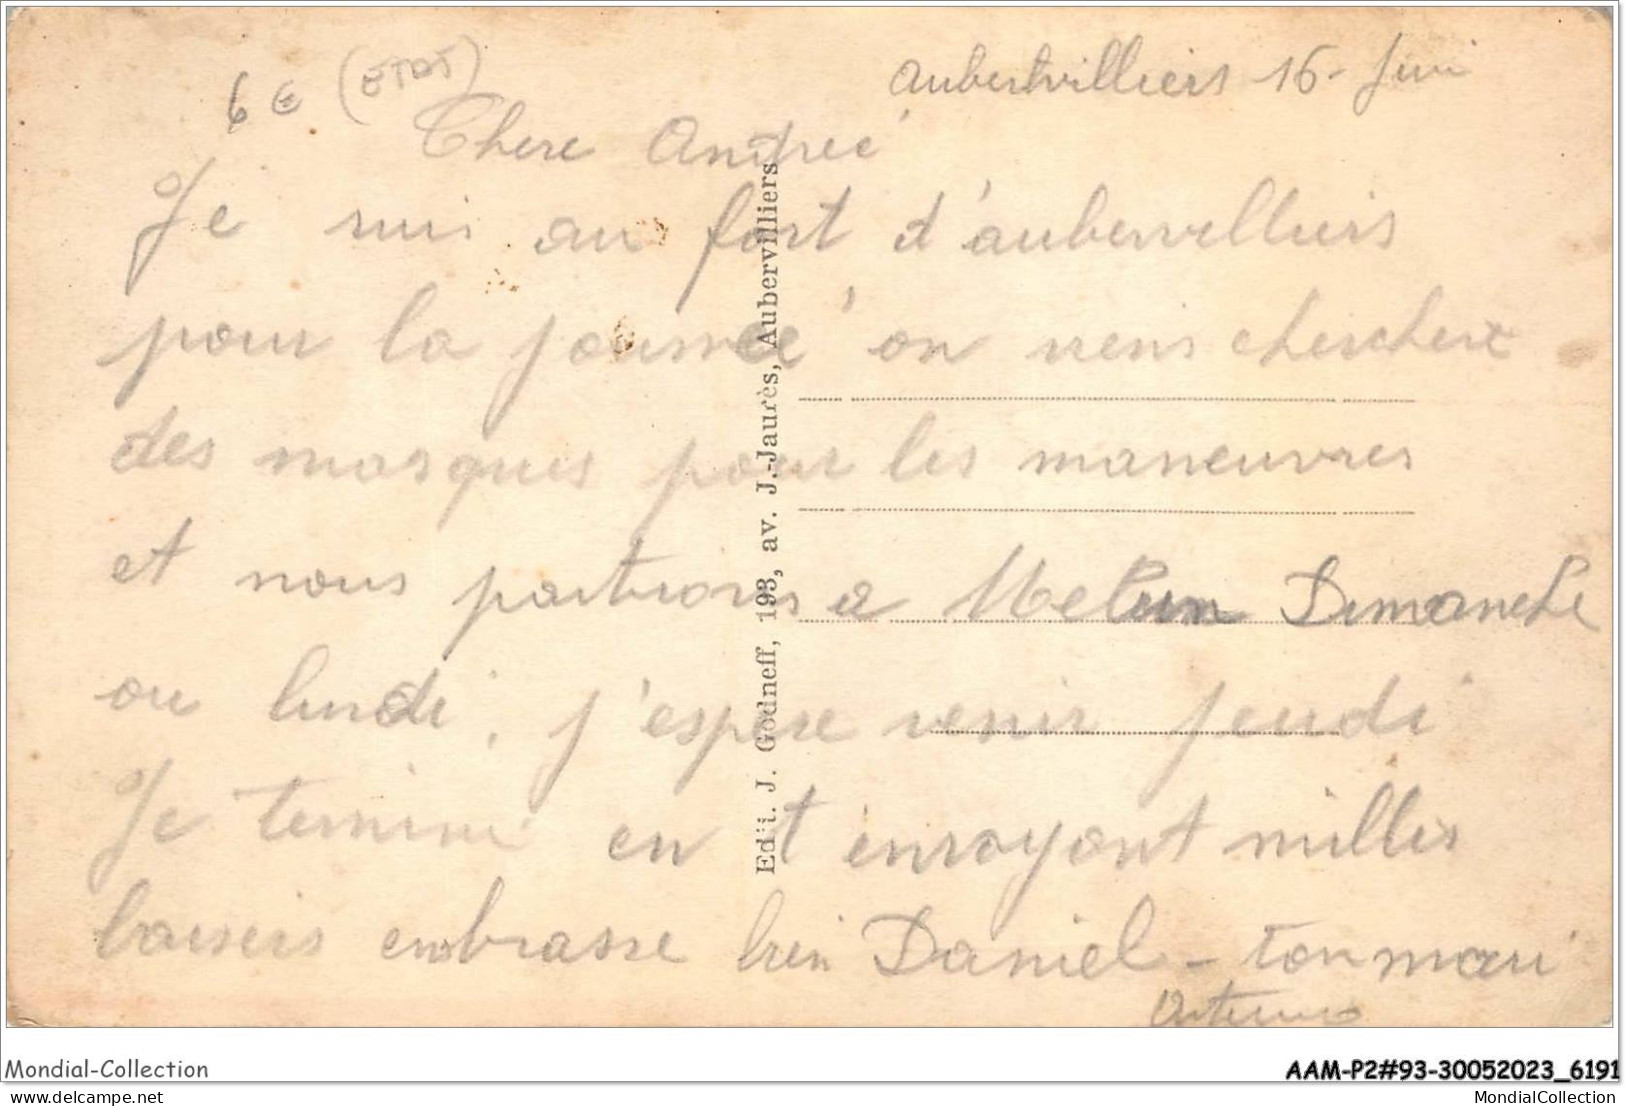 Aubertvilliers 16 - Juin
6 € (ETAT)
Chere Andreé
Je suis au fort d'aubervilliers
pour la journeé on viens chercher
des masques pour les maneuvres
et nous partirons a Melun Dimanche
ou lundi, j'espere venir jeudi
Je termine en t envoyant milles
baisers embrasse bien Daniel - ton mari
Edit. J. Godneff, 193, av. J.-Jaurès, Aubervilliers
Mondial-Collection
AAM-P2#93-30052023_6191
www.mondialcollection.net
MondialCollection.com